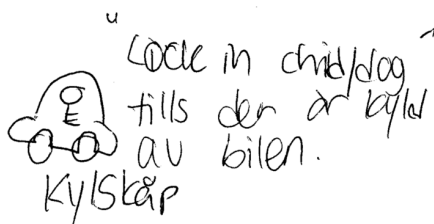 "Lock in child/dog"
tills den är kyld
av bilen.
Kylskåp